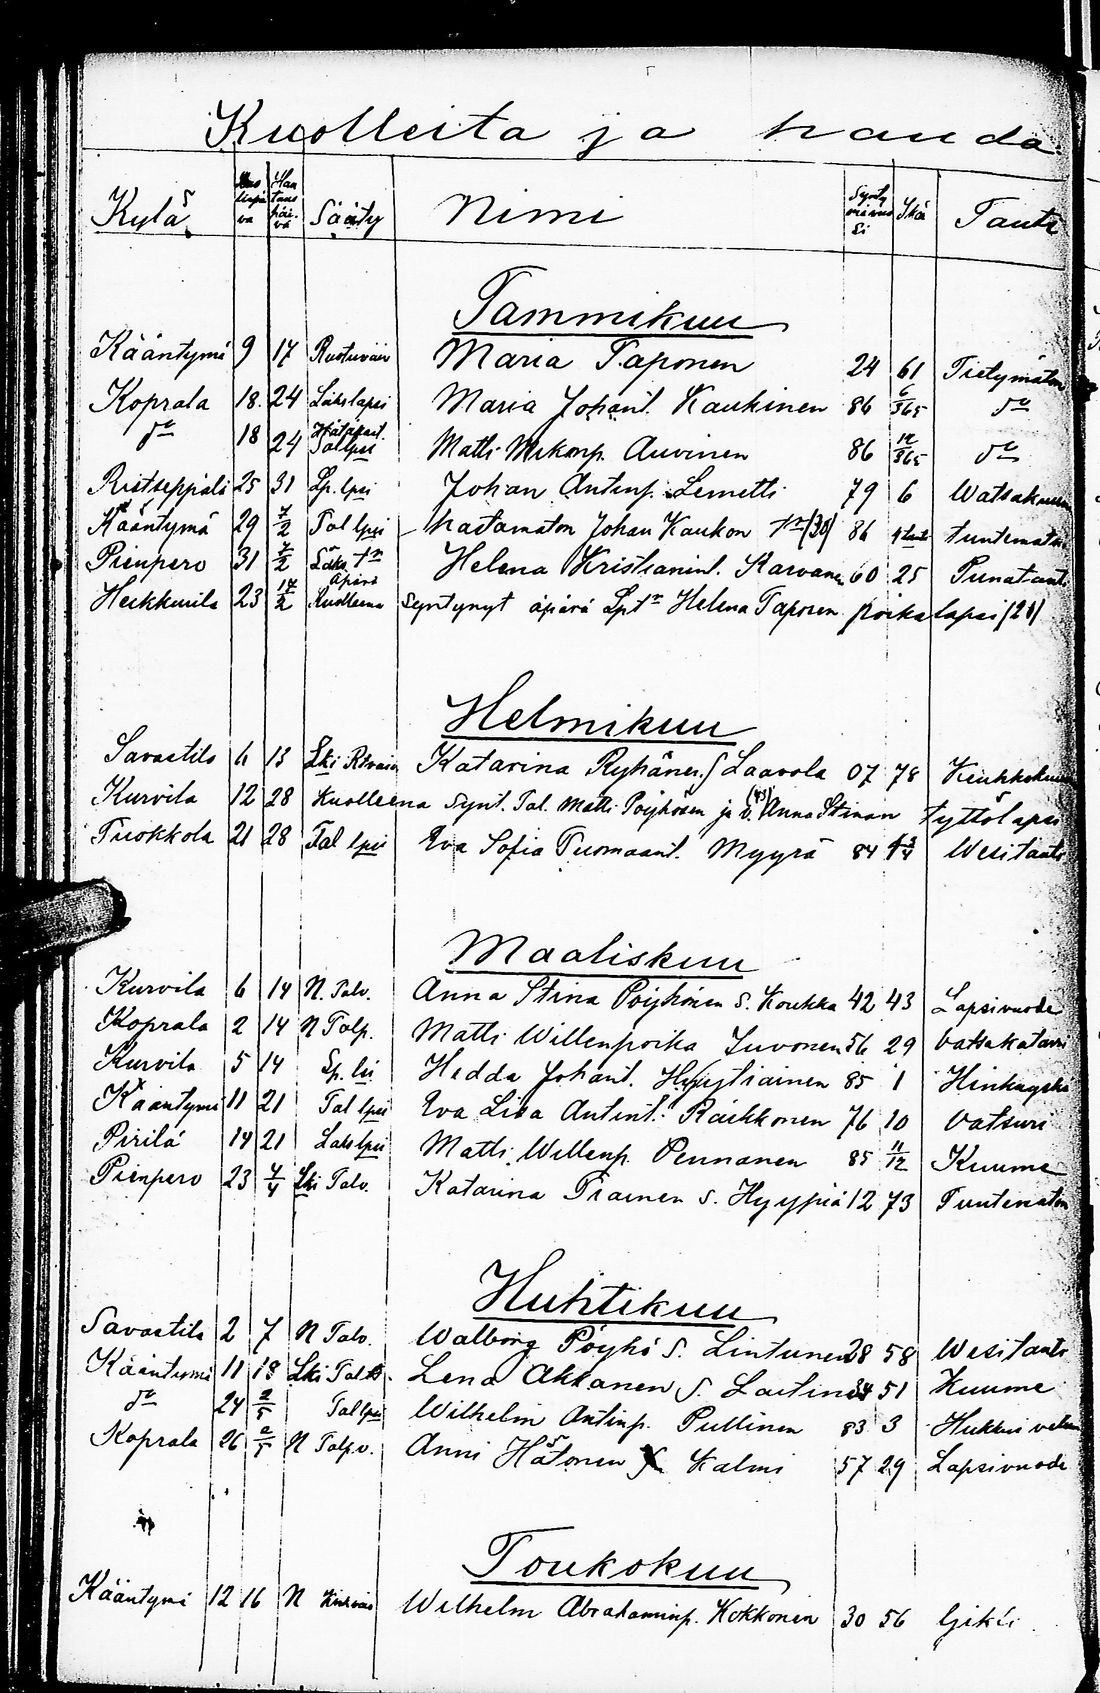 Kuolleita ja hauda
Kylä Kuolinpäivä Hautauspäivä Sääty Nimi Syntymävuosi Ikä Tauti
Tammikuu
Kääntymä 9 17 Maria Taponen 24 61 Tietymätön
Koprala 18 24 Läkslapsi Maria Johant. Kaukinen 86 6/365 do
do 18 24 Tal lpsi Matti Mikonp. Auvinen 86 12/365 do
Ristseppälä 25 31 Lp. lpsi Johan Antinp. Lemetti 79 6
Kääntymä 29 7/2 Tal lpsi hätämätön Johan Kaukon tr (38) 86 tuntematon
Pienpero 31 7/2 Läks. tr Helena Kristianint. Karvanen 60 25 Punatauti
Heikkurila 23 14/2 Äpärä Kuolleena Syntynyt äpärä Lp tr Helena Taposen poikalapsi (21)
Helmikuu
Savastila 6 13 Lki Katarina Ryhänen S. Laavola 07 78 Keuhkokuume
Kurvila 12 28 Kuolleena Synt. Tal. Matti Pöyhösen ja v. (43) Anna Stinan tyttölapsi
Tuokkola 21 28 Tal lpsi Eva Sofia Tuomaant. Myyrä 84 Wesitauti
Maaliskuu
Kurvila 6 14 N. Talv. Anna Stina Pöyhönen S. Koukka 42 43 Lapsivuode
Koprala 2 14 N Talp. Matti Willenpoika Juvonen 56 29 Vatsakatarri
Kurvila 5 14 Hedda Johant. Hyytiäinen 85 1 Hinkuyskä
Kääntymä 11 21 Tal lpsi Eva Liisa Antint. Räikkönen 76 10
Pirilä 14 21 Läkslpsi Matti Willenp. Pennanen 85 11/12 Kuume
Pienpero 23 4/4 Lki Talv. Katarina Piainen S. Hyypiä 12 73 Tuntematon
Huhtikuu
Savastila 2 7 N Talv. Walborg Pöyhö S. Lintunen 28 58 Wesitauti
Kääntymä 11 18 Lki Lena Akkanen S. Laitinen 34 51 Kuume
do 24 2/5 Tallpsi Wilhelm Antinp. Pullinen 83 3
Koprala 26 2/5 N Talp.v. Anni Hätönen S. Kalmi 57 29 Lapsivuode
Toukokuu
Kääntymä 12 16 N Wilhelm Abrahaminp. Kokkonen 30 56